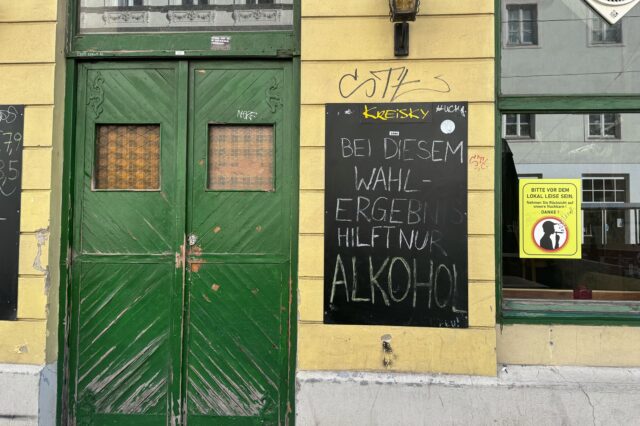 KREISKY
BEI DIESEM
WAHL-
ERGEBNIS
HILFT NUR
ALKOHOL
BITTE VOR DEM
LOKAL LEISE SEIN.
Nehmen Sie Rücksicht auf
unsere Nachbarn!
DANKE!